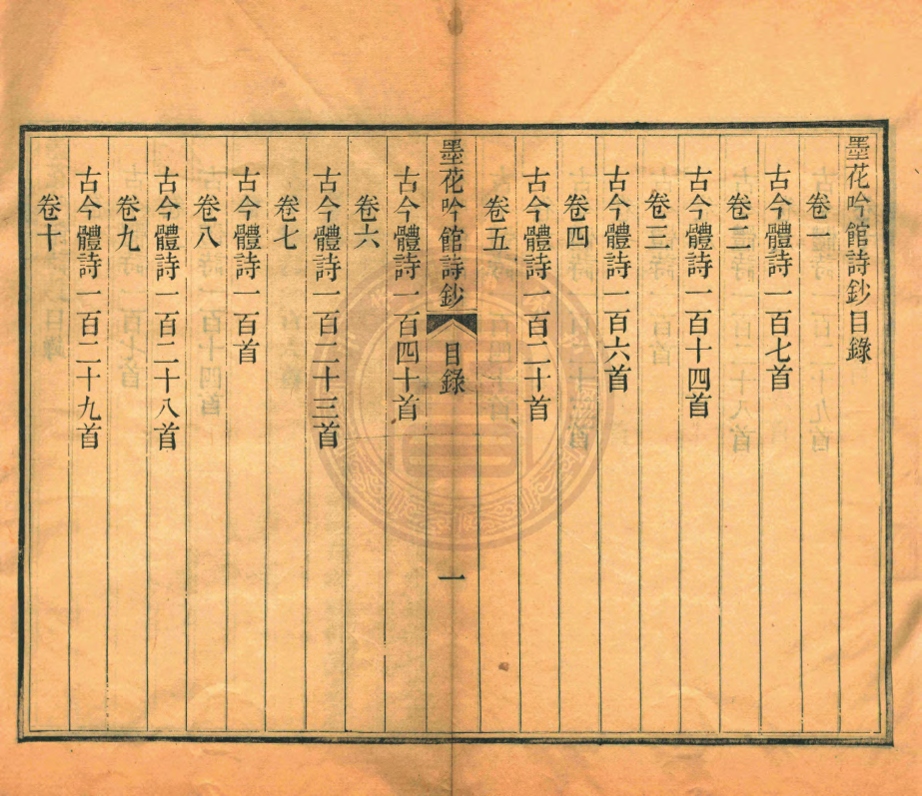 墨花吟館詩鈔目錄
卷一
古今體詩一百七首
卷二
古今體詩一百十四首
卷三
古今體詩一百六首
卷四
古今體詩一百二十首
卷五
墨花吟館詩鈔 目錄 一
古今體詩一百四十首
卷六
古今體詩一百二十三首
卷七
古今體詩一百首
卷八
古今體詩一百二十八首
卷九
古今體詩一百二十九首
卷十